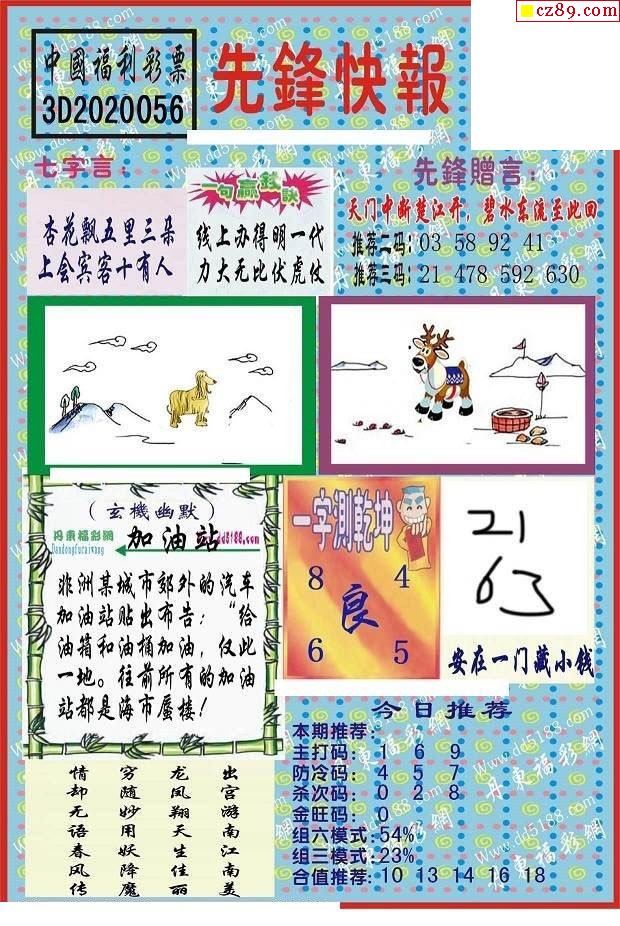 cz89.com
中國福利彩票
3D2020056
先鋒快報
七字言：
杏花飘五里三朵
上会宾客十有人
一句赢钱訣
线上办得明一代
力大无比伏虎仗
先鋒贈言：
天门中断楚江开，碧水东流至此回
推荐二码：03 58 92 41
推荐三码：21 478 592 630
（玄機幽默）
丹東福彩網
Dandongfucaiwang
加油站
dd5188.com
非洲某城市郊外的汽车
加油站贴出布告：“给
油箱和油桶加油，仅此
一地。往前所有的加油
站都是海市蜃楼！
一字测乾坤
8 4
良
6 5
21
63
安在一门藏小钱
今日推荐
本期推荐：
主打码：1 6 9
防冷码：4 5 7
杀次码：0 2 8
金旺码：0
组六模式：54%
组三模式：23%
合值推荐：10 13 14 16 18
情 穷 龙 出
却 随 凤 宫
无 妙 翔 游
语 用 天 南
春 妖 生 江
风 降 佳 南
传 魔 丽 美
Www.dd5188.com
丹東福彩網